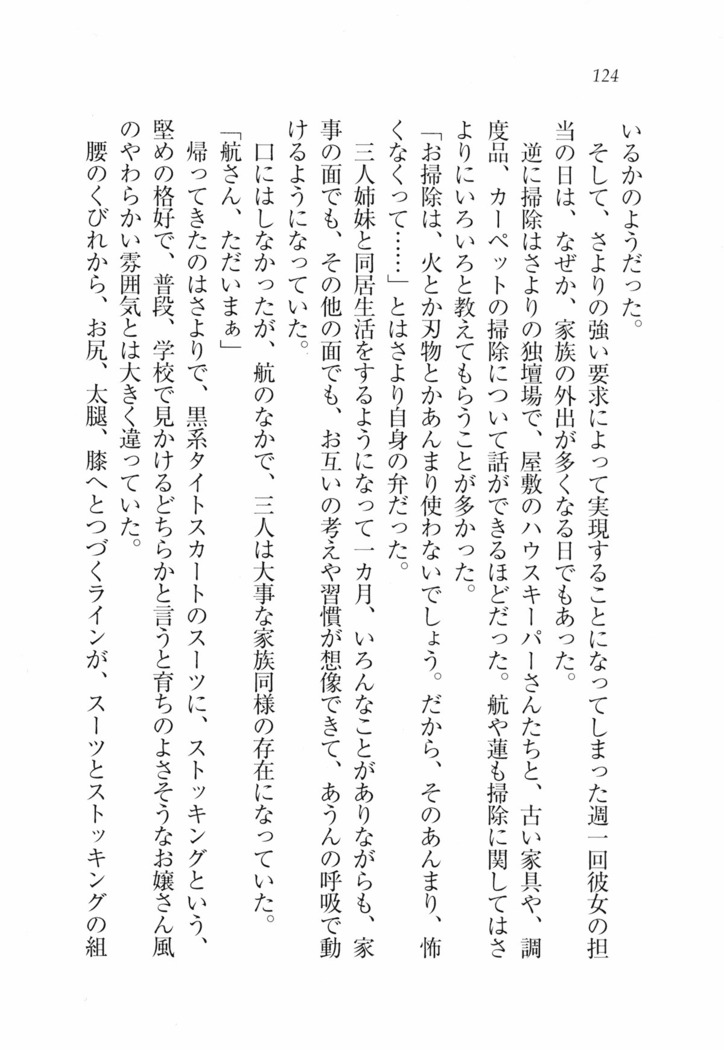 124
いるかのようだった。
そして、さよりの強い要求によって実現することになってしまった週一回彼女の担
当の日は、なぜか、家族の外出が多くなる日でもあった。
逆に掃除はさよりの独壇場で、屋敷のハウスキーパーさんたちと、古い家具や、調
度品、カーペットの掃除について話ができるほどだった。航や蓮も掃除に関してはさ
よりにいろいろと教えてもらうことが多かった。
「お掃除は、火とか刃物とかあんまり使わないでしょう。だから、そのあんまり、怖
くなくって……」とはさより自身の弁だった。
三人姉妹と同居生活をするようになって一カ月、いろんなことがありながらも、家
事の面でも、その他の面でも、お互いの考えや習慣が想像できて、あうんの呼吸で動
けるようになっていた。
口にはしなかったが、航のなかで、三人は大事な家族同様の存在になっていた。
「航さん、ただいまぁ」
帰ってきたのはさよりで、黒系タイトスカートのスーツに、ストッキングという、
堅めの格好で、普段、学校で見かけるどちらかと言うと育ちのよさそうなお嬢さん風
のやわらかい雰囲気とは大きく違っていた。
腰のくびれから、お尻、太腿、膝へとつづくラインが、スーツとストッキングの組